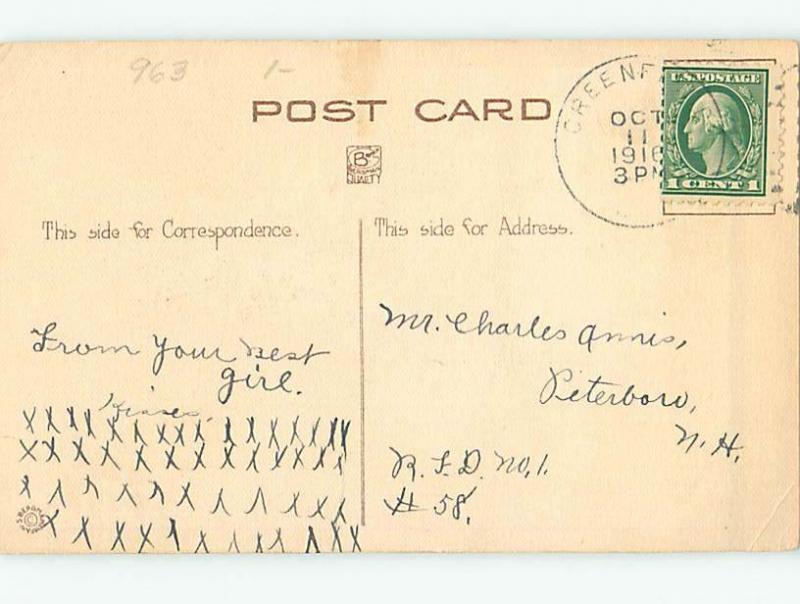 963 1-
POST CARD
GREENF
OCT
11
1916
3 PM
U.S. POSTAGE
1 CENT 1
QUALITY
This side for Correspondence.
This side for Address.
From your best
girl.
Kisses.
X X X X X X X X X X X X X X X X
X X X X X X X X X X X X X
X X X X X X X X X X X
X X X X X X X X X X X X
Mr. Charles Annis,
Peterboro,
N. H.
R. F. D. No. 1.
# 58.